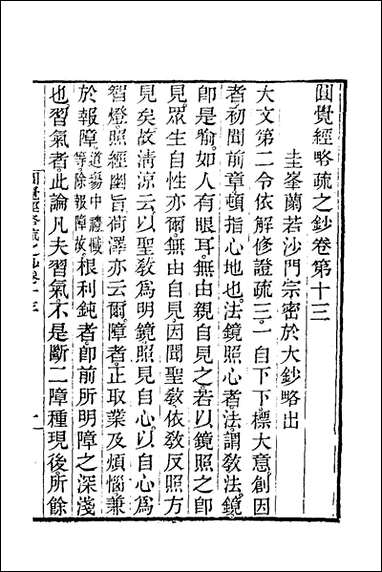 圓覺經略疏之鈔卷第十三
圭峯蘭若沙門宗密於大鈔略出
大文第二令依解修證疏三一自下下標大意創因
者初聞前章頓指心地也法鏡照心者法謂敎法鏡
卽是喻如人有眼耳無由親自見之若以鏡照之卽
見眾生自性亦爾無由自見因聞聖敎依敎反照方
見矣故淸涼云以聖敎爲明鏡照見自心以自心爲
智燈照經幽旨荷澤亦云爾障者正取業及煩惱兼
於報障道場中禮懺等除報障故根利鈍者卽前所明障之深淺
也習氣者此論凡夫習氣不是斷二障種現後所餘